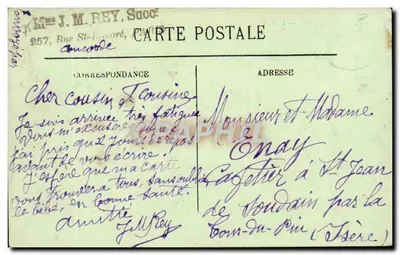 Mme J. M. REY, Succr
257, Rue St-Honoré, PARIS
Concorde
CARTE POSTALE
CORRESPONDANCE
ADRESSE
Cher Cousin et Cousine
Je suis arrivée très fatiguée
Vous m'excuserez
j'ai pris que jours de repos
avant de vous écrire.
J'espère que ma carte
vous trouvera tous, sans oublier
le bébé, en bonne santé.
amitié
JMRey
Monsieur et Madame
Onay
Cafetier à St Jean
de Soudain par la
Tour-du-Pin (Isère)